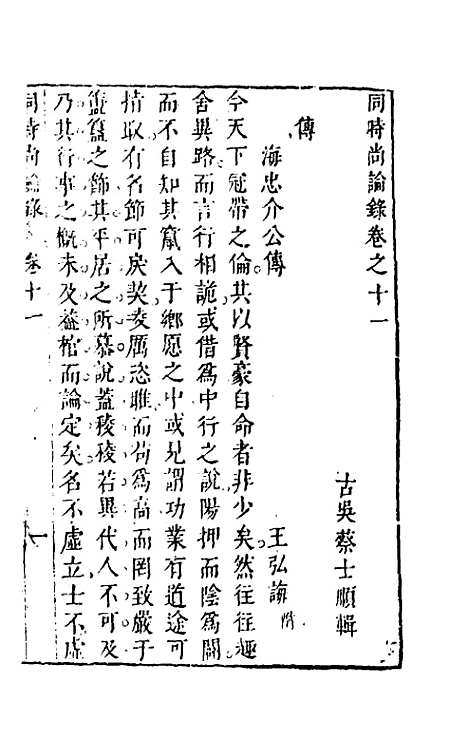 同時尚論錄卷之十一
古吳蔡士順輯
傳
海忠介公傳
王弘誨
今天下冠帶之倫其以賢豪自命者非少矣然往往趣
舍異路而言行相詭或借為中行之說陽押而陰為闢
而不自知其竄入于鄉愿之中或見謂功業有道途可
揹取有名節可戾契夌厲恣睢而苟為高而罔致嚴于
簠簋之節其平居之所慕說蓋稜稜若異代人不可及
乃其行事之槪未及葢棺而論定矣名不虛立士不虛
同時尚論錄
卷十一
一